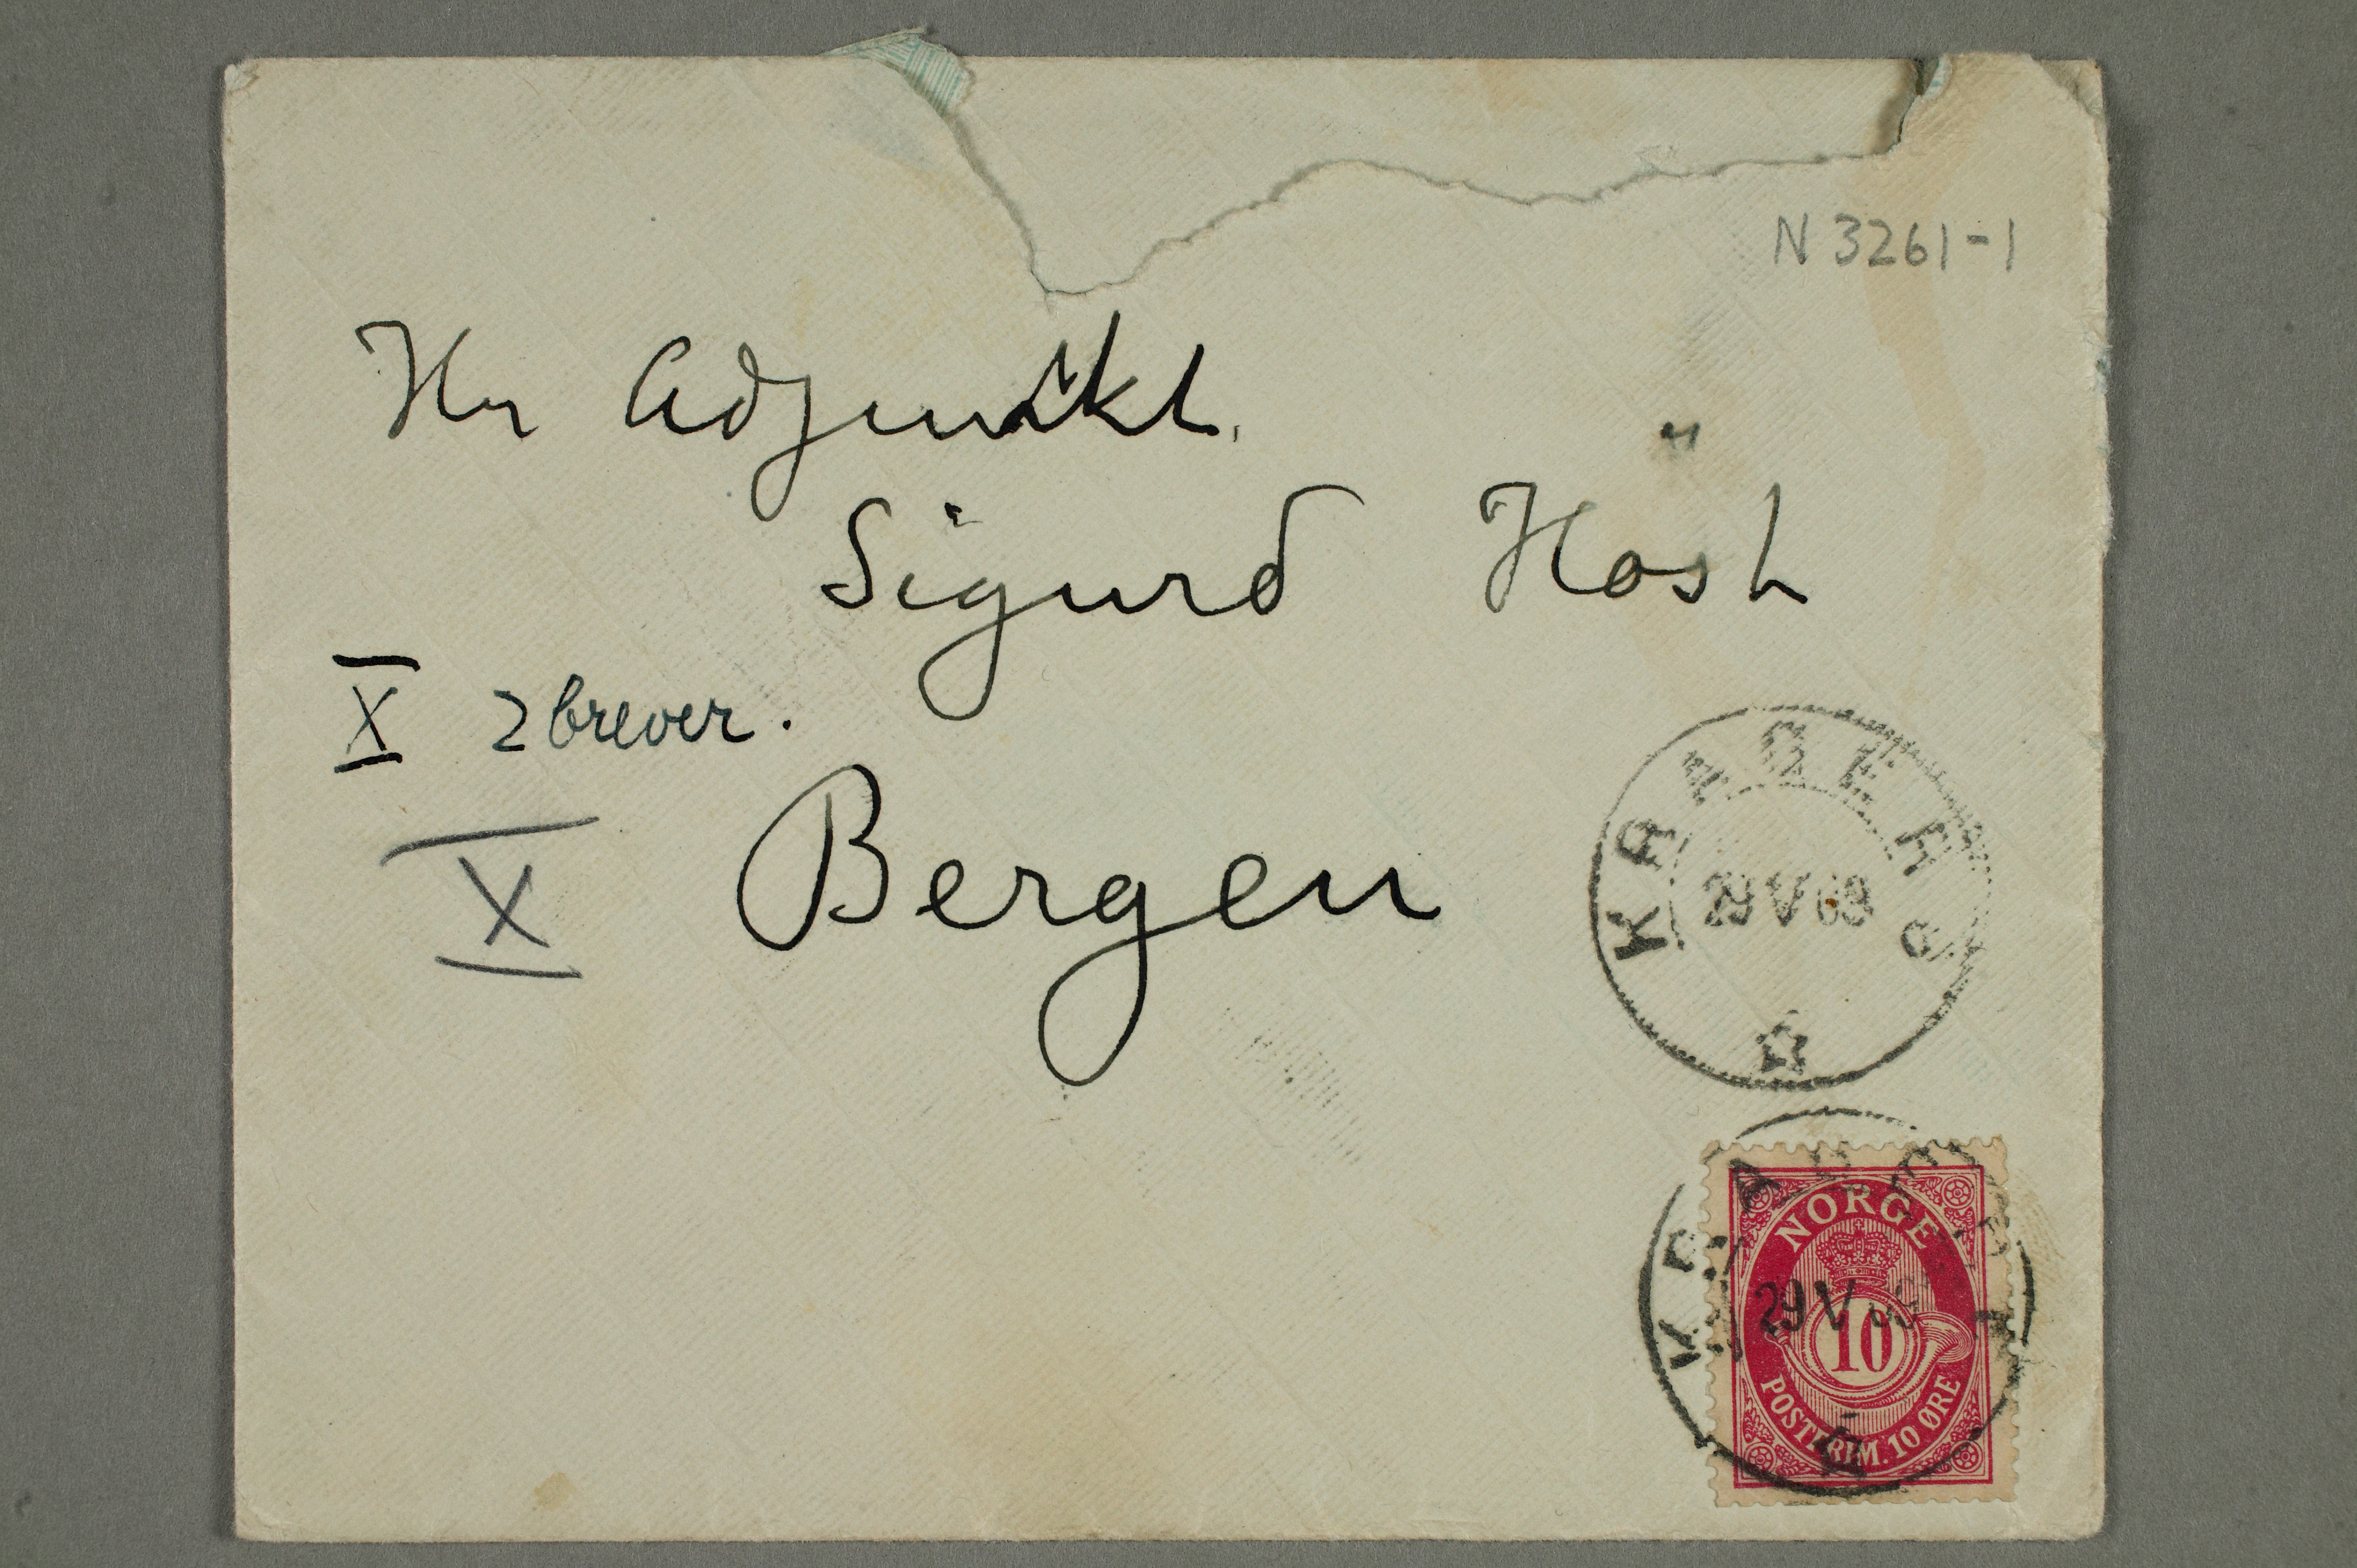 N 3261-1
Hr Adjunkt.
Sigurd Høst
X 2 brever.
X Bergen
KRAGERØ
29 V 09
KRAGERØ
NORGE
29 V 09
10
POSTFRIM. 10 ØRE